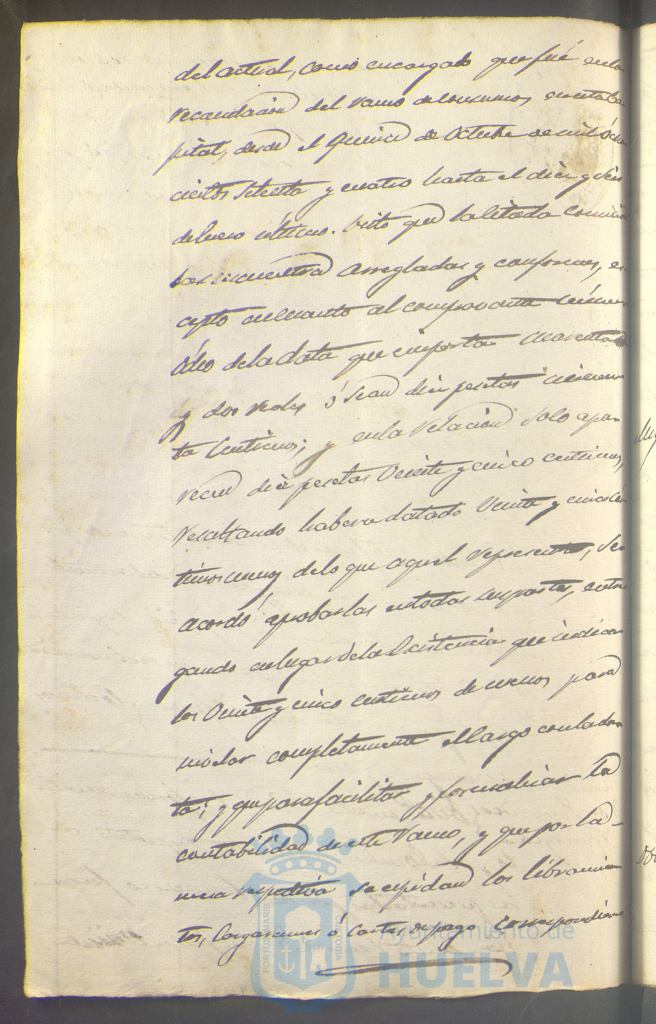 del actual, como encargado que fué en la
recaudacion del ramo de consumos en esta ca
pital, desde el quince de Octubre de mil ocho
cientos setenta y cuatro hasta el diez y seis
de Enero último. Visto que la citada
las encuentra arregladas y conformes, es
cepto en cuanto al comprovante
ócho de la data que importa cuarenta
y dos reales ó sean diez pesetas cincuen
ta centimos; y en la relacion solo apa
recen diez pesetas veinte y cinco centimos,
resultando haberse datado veinte y cinco cén
timos menos de lo que aquel representa, se
acordó aprobarlas en todas sus partes, entre
gando en lugar de la Existencia que indican
los veinte y cinco centimos de menos para
nivelar completamente el cargo con la da
ta; y que para facilitar y formalizar la
contabilidad de este ramo, y que por la
respectiva se espidan los libramien
tos, cargaremes ó cartas de pago correspondien
Ayuntamiento de
HUELVA